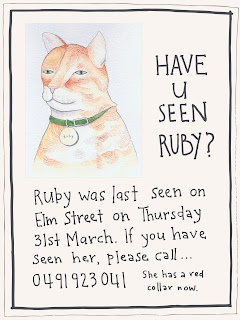 HAVE
U
SEEN
RUBY?
Ruby
Ruby was last seen on
Elm Street on Thursday
31st March. If you have
seen her, please call...
0491923041
She has a red
collar now.